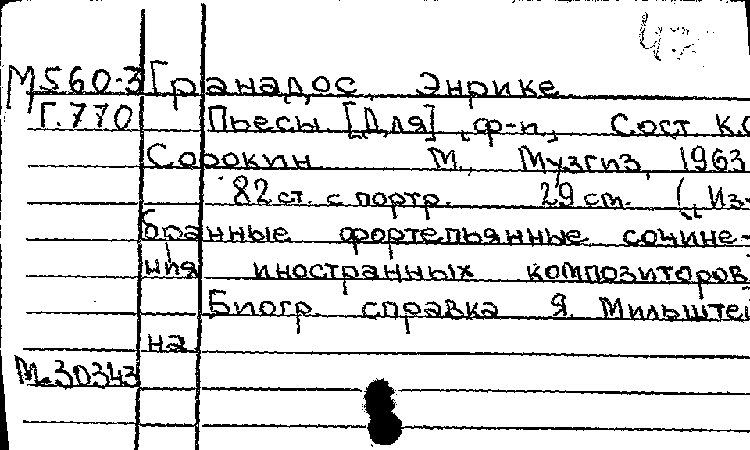 М560-3 Гранадос, Энрике
Г.770 Пьесы [Для] ф-п, Сост К.С
Сорокин М., Музгиз, 1963
82 ст. с портр. 29 cm. („Из-
бранные фортепьянные сочине-
ния иностранных композиторов
Биогр. справка Я. Мильштей
на
М.30343